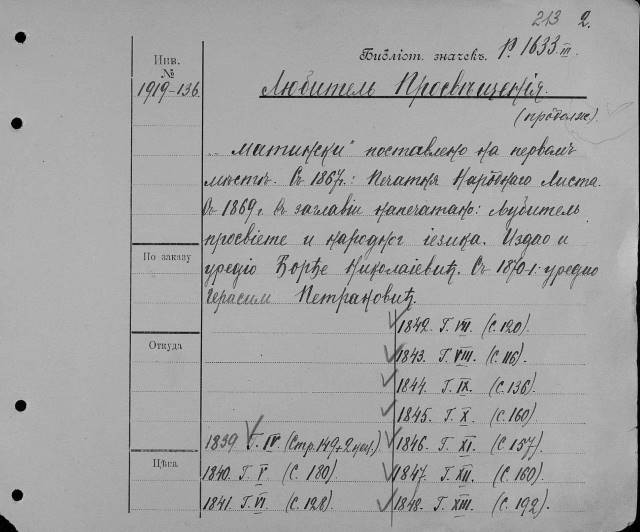 213 2.
Библіот. значекъ. Р. 1633.III.
Инв.
№
1919-136.
Любитель Просвѣщенія.
(продолж.)
"Матински" поставлено на первомъ
мѣстѣ. Съ 1867г.: Печатня Народнаго Листа.
Съ 1869 г. въ заглавіи напечатано: Љубитель
просвіете и народног іезика. Издао и
По заказу
уредіо Ђорђе Николаіевић. Съ 1870 г.: уредио
Герасим Петрановић.
1842. Г. VII. (С. 120).
Откуда
1843. Г. VIII. (С. 116).
1844. Г. IX. (С. 136).
1845. Г. X. (С. 160)
1839 Г. IV (Стр. 149+2 нен.)
1846. Г. XI. (С 157).
Цѣна
1840. Г. V (С. 180).
1847. Г. XII. (С. 160).
1841. Г. VI (С. 128).
1848. Г. XIII. (С. 192).